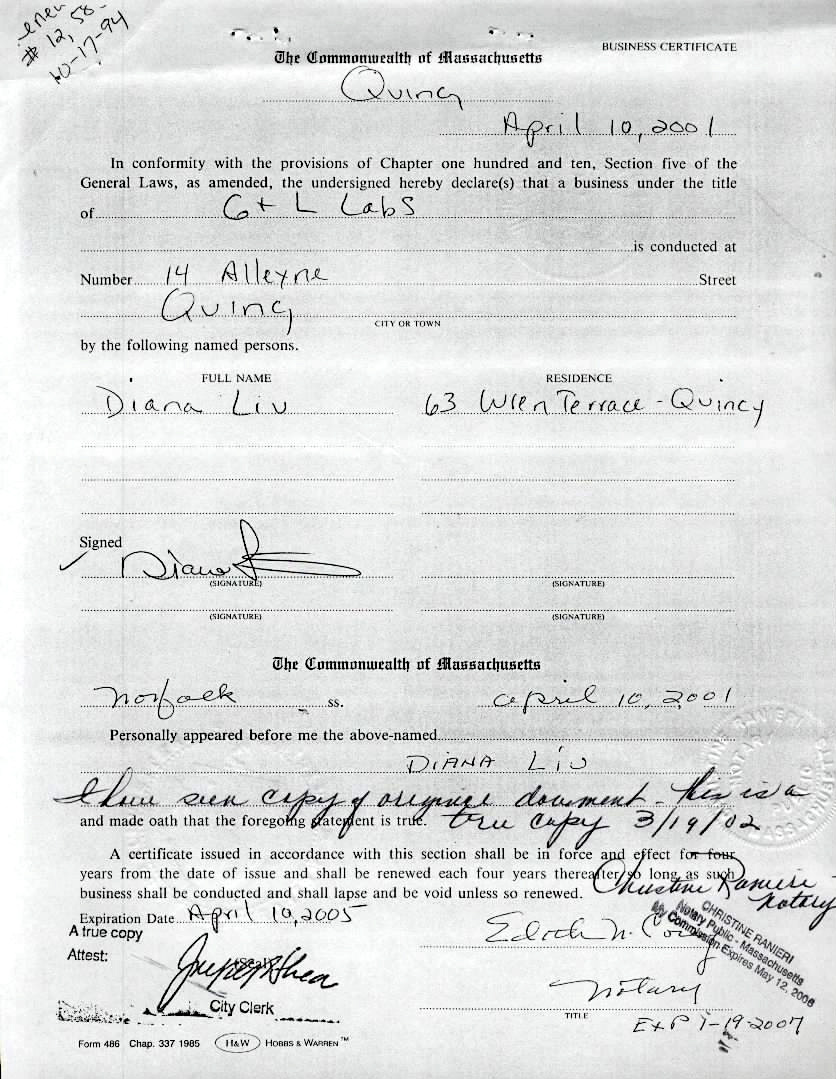 # 12, 58-
10-17-94
BUSINESS CERTIFICATE
The Commonwealth of Massachusetts
Quincy
April 10, 2001
In conformity with the provisions of Chapter one hundred and ten, Section five of the
General Laws, as amended, the undersigned hereby declare(s) that a business under the title
of G + L Labs
is conducted at
Number 14 Alleyne Street
Quincy
CITY OR TOWN
by the following named persons.
FULL NAME RESIDENCE
Diana Liu 63 Wren Terrace - Quincy
Signed
Diana
(SIGNATURE) (SIGNATURE)
(SIGNATURE) (SIGNATURE)
The Commonwealth of Massachusetts
Norfolk ss. April 10, 2001
Personally appeared before me the above-named
DIANA LIU
I have seen copy of original document - this is a
and made oath that the foregoing statement is true. true copy 3/19/02
A certificate issued in accordance with this section shall be in force and effect for four
years from the date of issue and shall be renewed each four years thereafter so long as such
business shall be conducted and shall lapse and be void unless so renewed. Christine Ranieri - Notary
Expiration Date April 10, 2005
CHRISTINE RANIERI
Notary Public - Massachusetts
My Commission Expires May 12, 2006
A true copy
Attest:
Joseph Shea
City Clerk
Edith M.
Notary
TITLE
EXP 1-19-2007
Form 486 Chap. 337 1985 H&W HOBBS & WARREN™